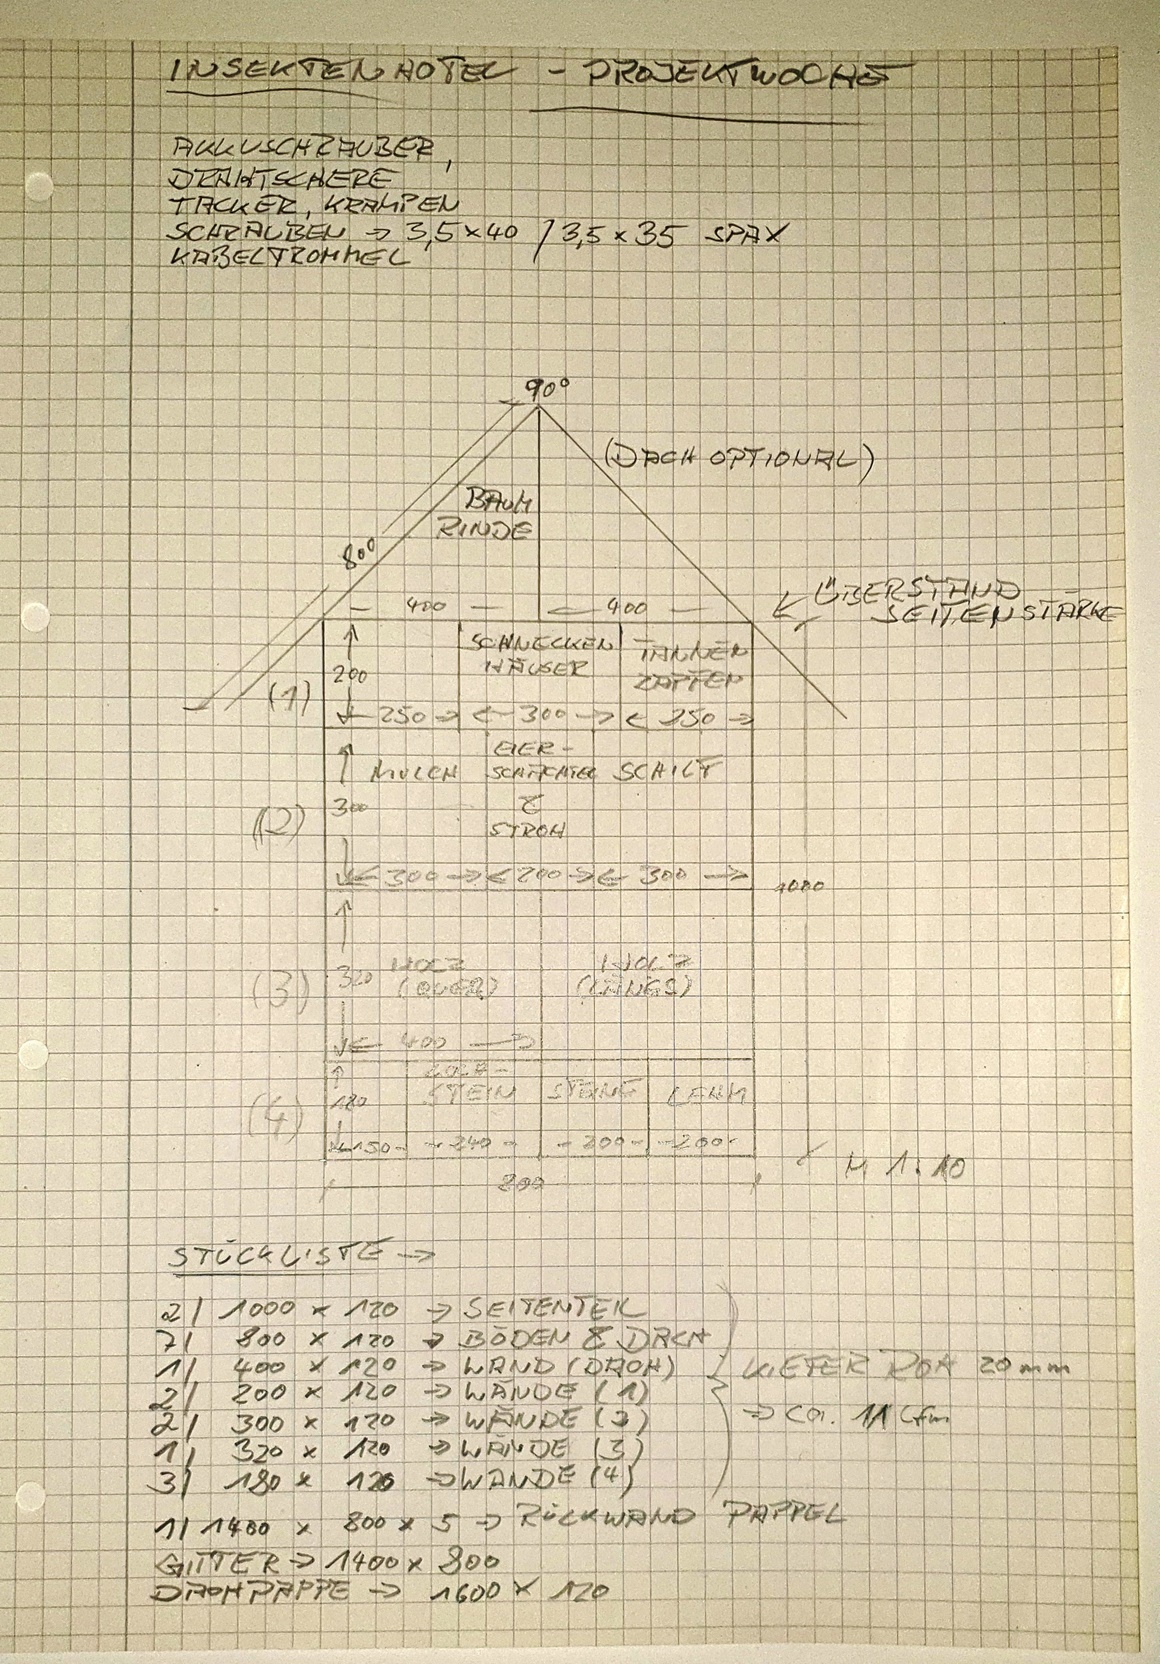 INSEKTENHOTEL - PROJEKTWOCHE
AKKUSCHRAUBER,
DRAHTSCHERE
TACKER, KRAMPEN
SCHRAUBEN → 3,5×40 / 3,5×35 SPAX
KABELTROMMEL
90°
(DACH OPTIONAL)
BAUM
RINDE
800
400 400
ÜBERSTAND
SEITENSTÄRKE
(1) 200
SCHNECKEN
HÄUSER
TANNEN
ZAPFEN
250 300 250
(2) 300
MULCH
EIER-
SCHACHTEL
&
STROH
SCHILF
300 200 300
1000
(3) 320
HOLZ
(QUER)
HOLZ
(LÄNGS)
400
(4) 180
STEIN
STEINE
LEHM
150 240 200 200
800
M 1:10
STÜCKLISTE →
2/ 1000 × 120 → SEITENTEIL
7/ 800 × 120 → BÖDEN & DACH
1/ 400 × 120 → WAND (DACH)
2/ 200 × 120 → WÄNDE (1)
2/ 300 × 120 → WÄNDE (2)
1/ 320 × 120 → WÄNDE (3)
3/ 180 × 120 → WÄNDE (4)
KIEFER ROH 20 mm
→ ca. 11 Lfm
1/ 1400 × 800 × 5 → RÜCKWAND PAPPEL
GITTER → 1400 × 800
DACHPAPPE → 1600 × 120